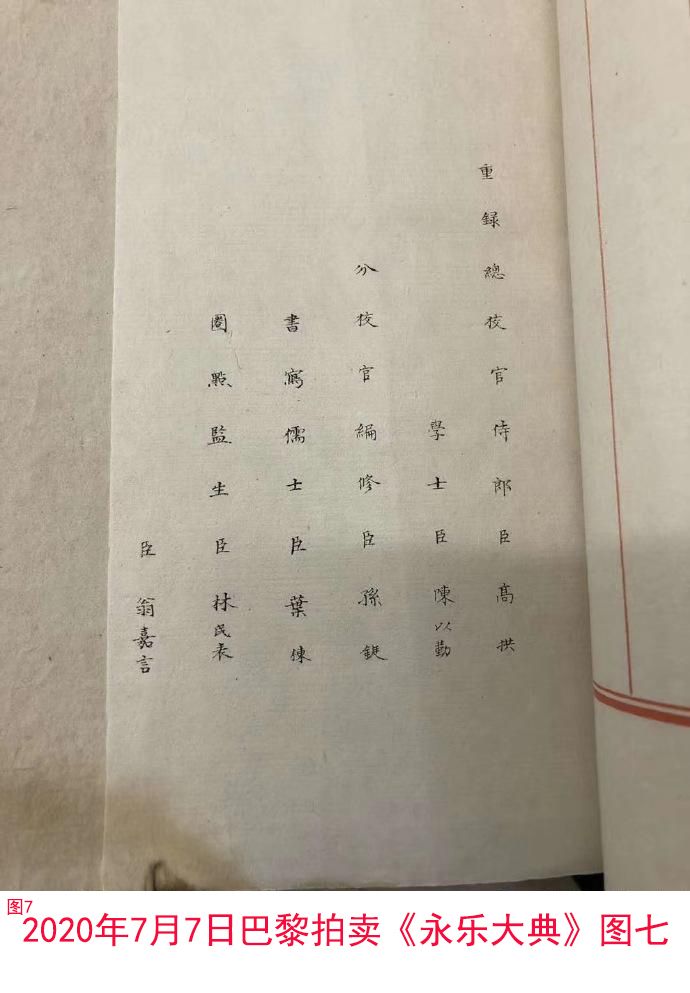 重錄總校官侍郎臣高拱
學士臣陳以勤
分校官編修臣孫鋌
書寫儒士臣葉倲
圈點監生臣林民表
臣翁嘉言
图7
2020年7月7日巴黎拍卖《永乐大典》图七